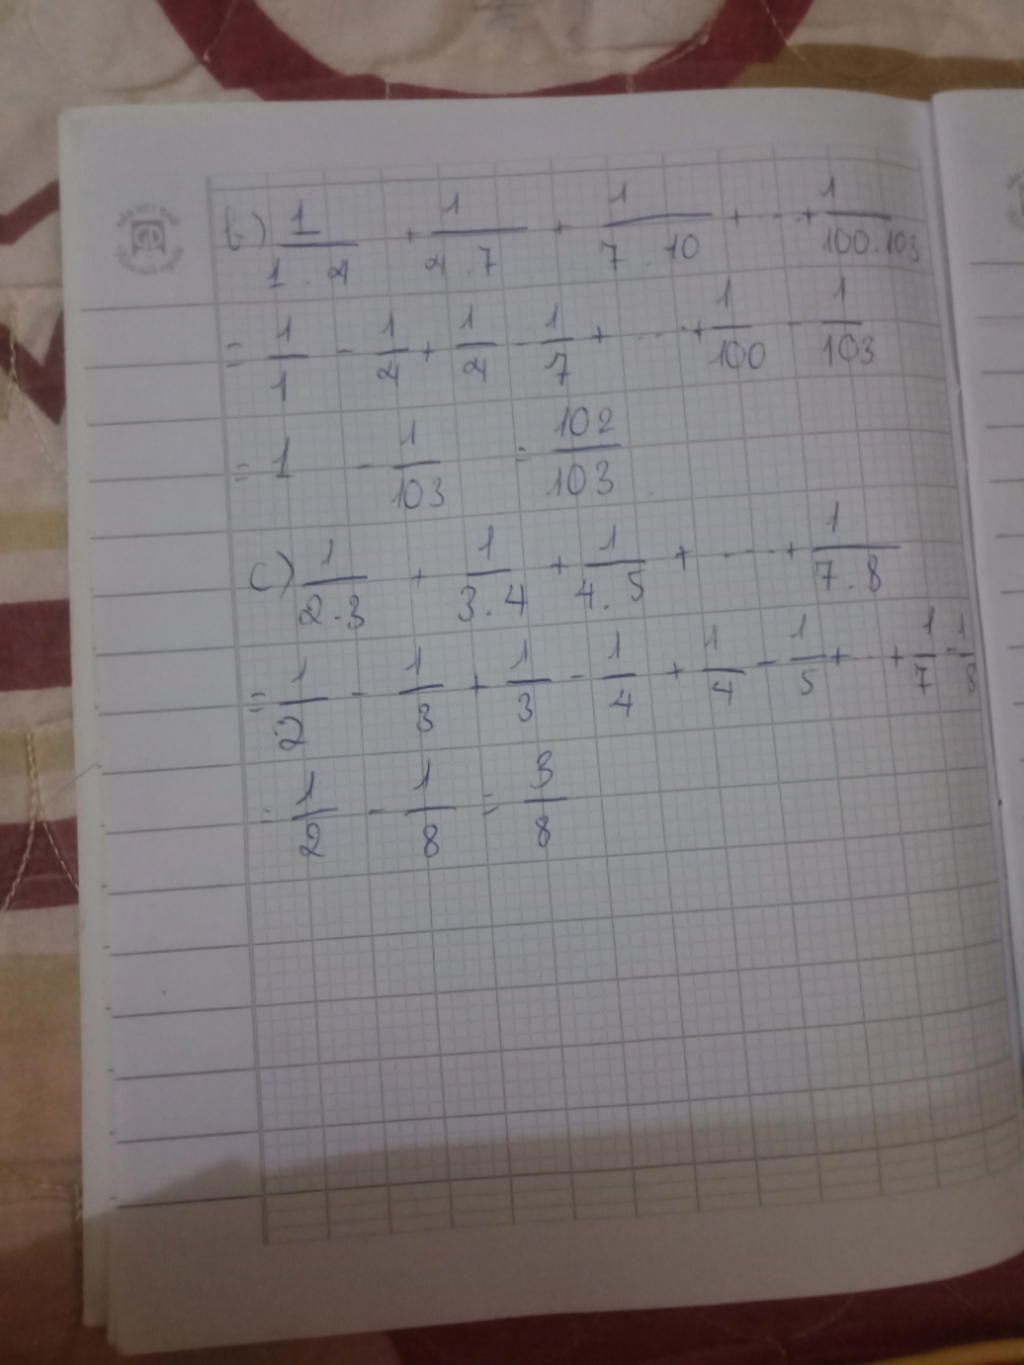 b) 1/(1.4) + 1/(4.7) + 1/(7.10) + ... + 1/(100.103)
= 1/1 - 1/4 + 1/4 - 1/7 + ... + 1/100 - 1/103
= 1 - 1/103 = 102/103.
c) 1/(2.3) + 1/(3.4) + 1/(4.5) + ... + 1/(7.8)
= 1/2 - 1/3 + 1/3 - 1/4 + 1/4 - 1/5 + ... + 1/7 - 1/8
= 1/2 - 1/8 = 3/8